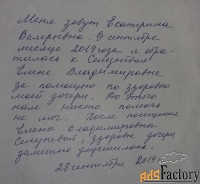 Меня зовут Екатерина
Валерьевна. В сентябре
месяце 2019 года я обра-
тилась к Селуневой
Елене Владимировне
за помощью по здоровью
моей дочери. До этого
нам никто помочь
не мог. После посещения
Елена Владимировна
Селуневой, здоровье дочери
заметно улучшилось.
28 сентября 2019
adsFactory